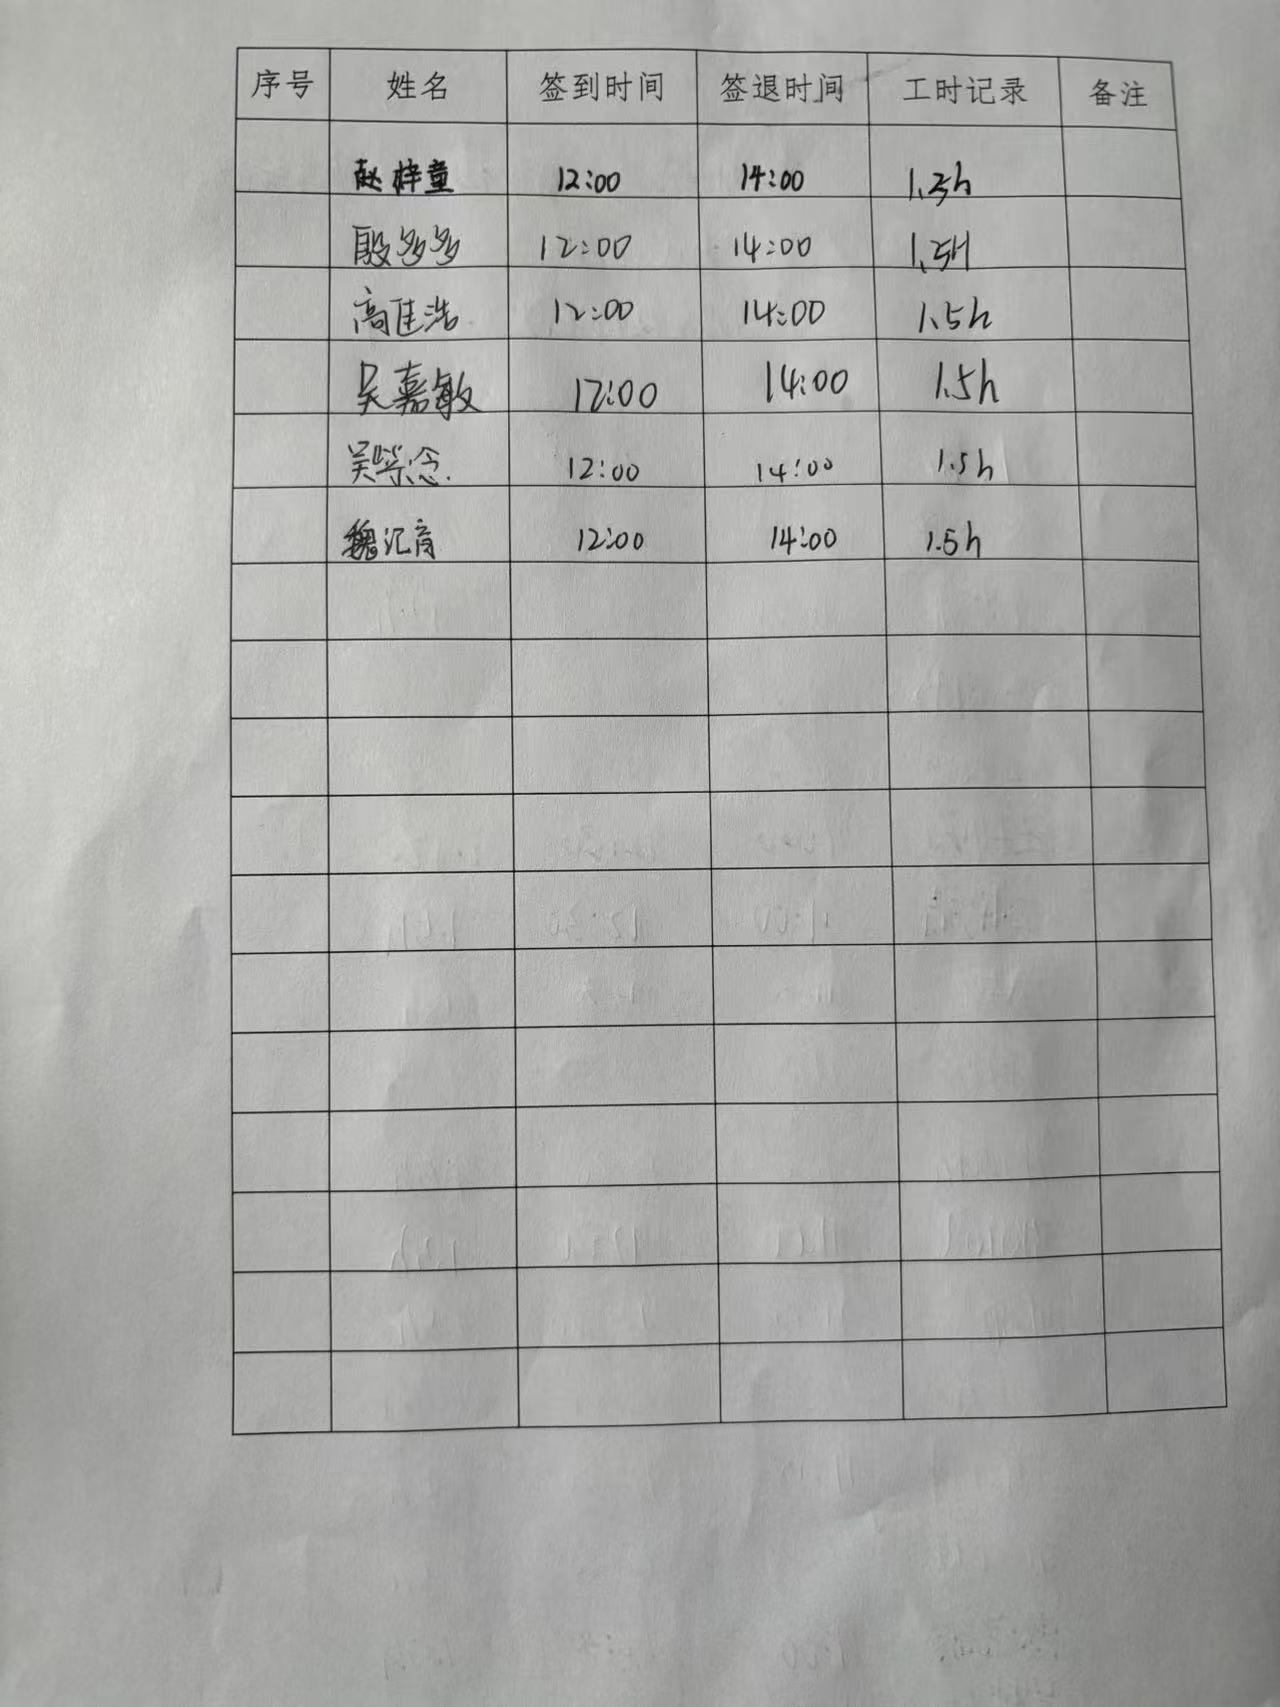 序号 姓名 签到时间 签退时间 工时记录 备注
赵梓童 12:00 14:00 1.5h
殷多多 12:00 14:00 1.5H
高佳浩 12:00 14:00 1.5h
吴嘉敏 12:00 14:00 1.5h
吴 念 12:00 14:00 1.5h
魏汇育 12:00 14:00 1.5h